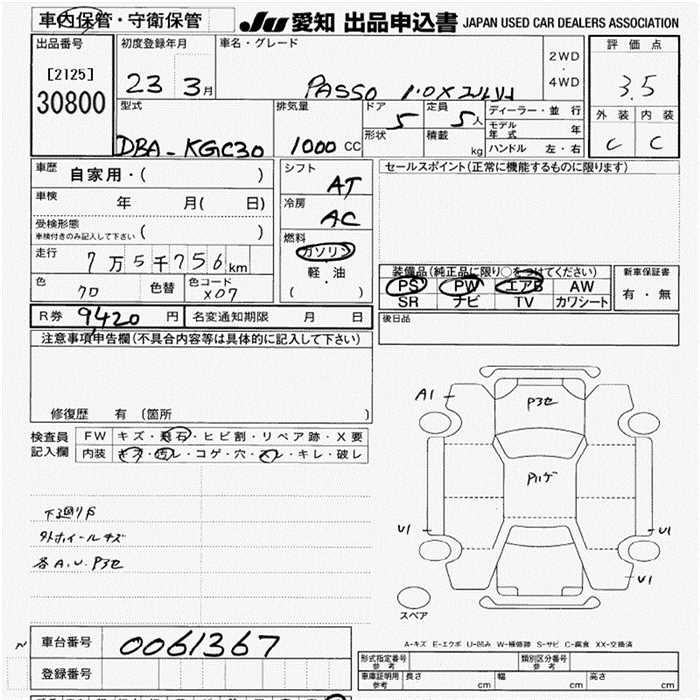 車内保管・守衛保管
JU 愛知 出品申込書 JAPAN USED CAR DEALERS ASSOCIATION
出品番号
[2125]
30800
初度登録年月
23 3月
車名・グレード
PASSO 1.0X
2WD
・
4WD
評価点
3.5
外装 内装
C C
型式
DBA-KGC30
排気量
1000 CC
ドア
5
形状
定員
5人
積載
kg
ディーラー・並行
モデル年式 年
ハンドル 左・右
車歴
自家用・( )
車検
年 月( 日)
受検形態
車検付きのみ記入して下さい ( )
走行
7万5千756km
色
クロ
色替
色コード
X07
シフト
AT
冷房
AC
燃料
ガソリン
・
軽・油
( )
セールスポイント(正常に機能するものに限ります)
装備品(純正品に限り○をつけてください)
PS PW エアB AW
SR ナビ TV カワシート
新車保証書
有・無
後日品
R券 9,420 円
名変通知期限 月 日
注意事項申告欄(不具合内容等は具体的に記入して下さい)
修復歴 有 (箇所 )
検査員
記入欄
FW キズ・飛石・ヒビ割・リペア跡・X要
内装 キズ・汚レ・コゲ・穴・スレ・キレ・破レ
下廻りP
外ホイールキズ
各A.U.P3セ
A1
P3セ
Pハゲ
U1
U1
U1
スペア
A-キズ E-エクボ U-凹み W-補修跡 S-サビ C-腐食 XX-交換済
車台番号
0061367
登録番号
形式指定番号
参考
類別区分番号
参考
車庫証明用
参考
長さ cm 幅 cm 高さ cm